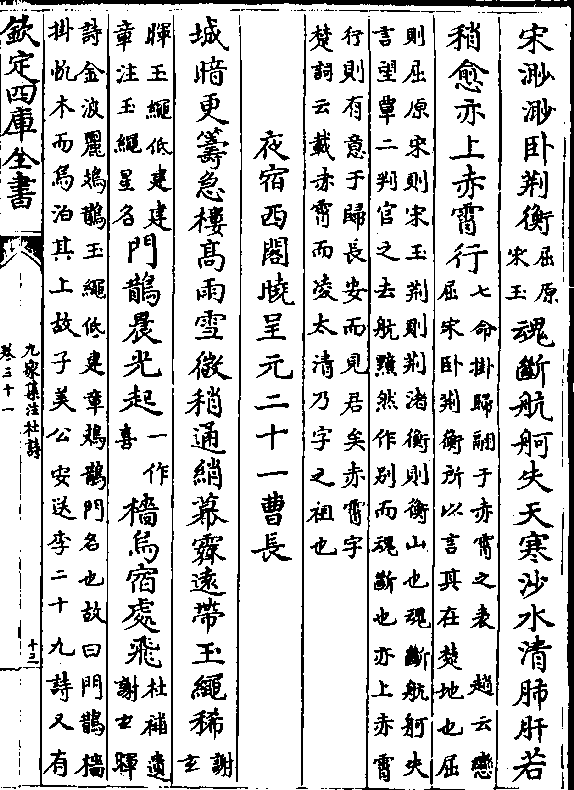 宋渺渺卧荆衡屈原宋玉魂斷航舸失天寒沙水清肺肝若
稍愈亦上赤霄行七命掛歸翮于赤霄之表 趙云戀屈宋卧荆衡所以言其在楚地也屈
則屈原宋則宋玉荆則荆渚衡則衡山也魂斷航舸失言望覃二判官之去航黯然作别而魂斷也亦上赤霄
行則有意于歸長安而見君矣赤霄字楚詞云載赤霄而凌太清乃字之祖也
夜宿西閣曉呈元二十一曹長
城暗更籌急樓髙雨雪微稍通綃幕霽逺帶玉繩稀謝玄
暉玉繩低建建章注玉繩星名門鵲晨光起一作喜檣烏宿處飛杜補遺謝玄暉
詩金波麗鳷鵲玉繩低建章鳷鵲門名也故曰門鵲檣掛帆木而烏泊其上故子美公安送李二十九詩又有
欽定四庫全書
九家集注杜詩
卷三十一
十三